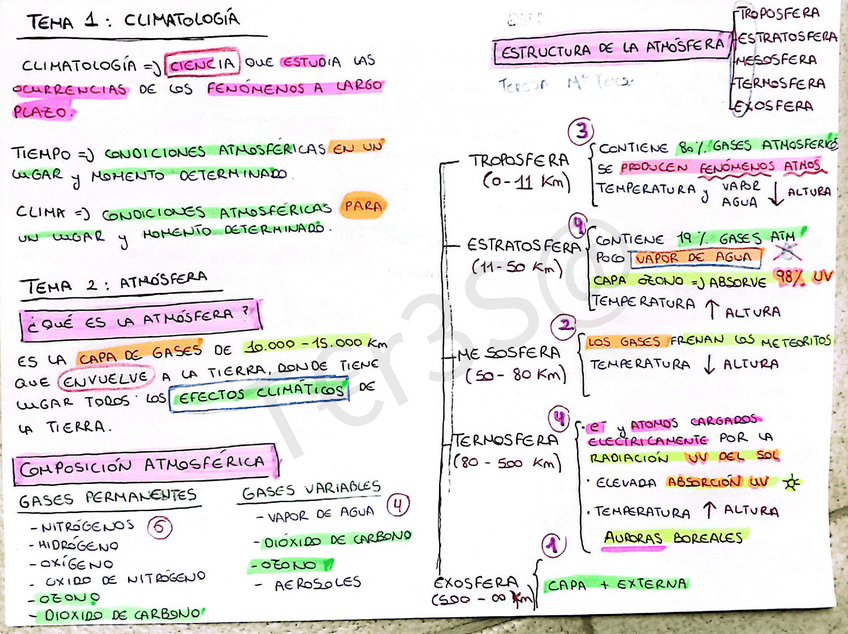 TEMA 1: CLIMATOLOGÍA
CLIMATOLOGÍA => CIENCIA QUE ESTUDIA LAS
OCURRENCIAS DE LOS FENÓMENOS A LARGO
PLAZO.
TIEMPO => CONDICIONES ATMOSFÉRICAS EN UN
LUGAR y MOMENTO DETERMINADO.
CLIMA => CONDICIONES ATMOSFÉRICAS PARA
UN LUGAR y MOMENTO DETERMINADO.
TEMA 2: ATMÓSFERA
¿QUÉ ES LA ATMÓSFERA?
ES LA CAPA DE GASES DE 10.000 - 15.000 Km
QUE ENVUELVE A LA TIERRA, DONDE TIENE
LUGAR TODOS LOS EFECTOS CLIMÁTICOS DE
LA TIERRA.
COMPOSICIÓN ATMOSFÉRICA
GASES PERMANENTES
- NITRÓGENOS 6
- HIDRÓGENO
- OXÍGENO
- OXIDO DE NITRÓGENO
- OZONO
- DIOXIDO DE CARBONO
GASES VARIABLES
- VAPOR DE AGUA 4
- DIÓXIDO DE CARBONO
- OZONO
- AEROSOLES
ESTRUCTURA DE LA ATMÓSFERA
TROPOSFERA
ESTRATOSFERA
MESOSFERA
TERMOSFERA
EXOSFERA
TROPOSFERA
(0-11 Km)
3
CONTIENE 80% GASES ATMOSFERICO
SE PRODUCEN FENÓMENOS ATMOS.
TEMPERATURA y VAPOR AGUA ↓ ALTURA
ESTRATOSFERA
(11-50 Km)
4
CONTIENE 19% GASES ATM
POCO VAPOR DE AGUA
CAPA OZONO => ABSORVE 98% UV
TEMPERATURA ↑ ALTURA
MESOSFERA
(50-80 Km)
2
LOS GASES FRENAN LOS METEORITOS
TEMPERATURA ↓ ALTURA
TERMOSFERA
(80-500 Km)
4
· et y ATOMOS CARGADOS
ELECTRICAMENTE POR LA
RADIACIÓN UV DEL SOL
· ELEVADA ABSORCIÓN UV
· TEMPERATURA ↑ ALTURA
AURORAS BOREALES
EXOSFERA
(500-∞ Km)
1
CAPA + EXTERNA
Ter3S©